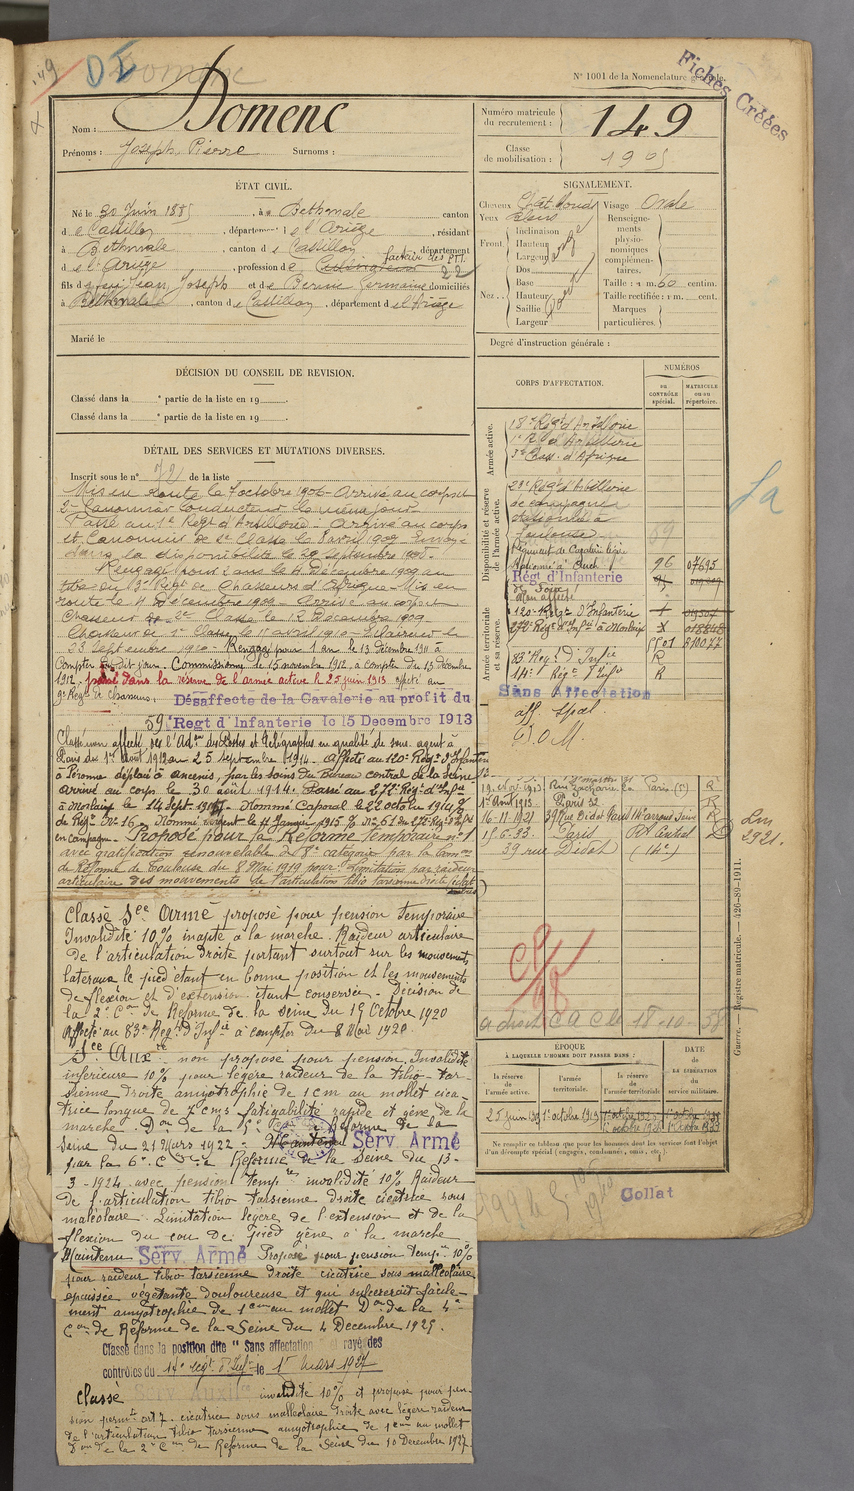 149
DI
Domenc
N° 1001 de la Nomenclature générale.
Fiches Créées
Nom : Domenc
Prénoms : Joseph Pierre Surnoms :
Numéro matricule du recrutement : 149
Classe de mobilisation : 1905
ÉTAT CIVIL.
Né le 30 Juin 1885, à Bethmale canton
de Castillon, département de l'Ariège, résidant
à Bethmale, canton de Castillon, département
de l'Ariège, profession de Cultivateur facteur des PTT
fils de feu Jean Joseph et de Bernie Germaine domiciliés
à Bethmale, canton de Castillon, département de l'Ariège
Marié le
SIGNALEMENT.
Cheveux Chât. foncé Visage Ovale
Yeux bleus
Front. Inclinaison
Hauteur
Largeur
Nez. Dos
Base
Hauteur
Saillie
Largeur
Renseignements physionomiques complémentaires.
Taille : 1 m. 60 centim.
Taille rectifiée : 1 m. cent.
Marques particulières.
Degré d'instruction générale :
DÉCISION DU CONSEIL DE REVISION.
Classé dans la e partie de la liste en 19
Classé dans la e partie de la liste en 19
DÉTAIL DES SERVICES ET MUTATIONS DIVERSES.
Inscrit sous le n° 72 de la liste
Mis en route le 7 octobre 1906 - Arrivé au corps et
2e Canonnier Conducteur le même jour
Passé au 1er Régt d'Artillerie - Arrivé au corps
et Canonnier de 2e Classe le 8 avril 1909 Envoyé
dans la disponibilité le 29 septembre 1908.
Rengagé pour 2 ans le 4 Décembre 1909 au
titre du 3e Régt de Chasseurs d'Afrique - Mis en
route le 4 Décembre 1909 - Arrivé au corps et
Chasseur de 2e Classe le 12 Décembre 1909 -
Chasseur de 1e Classe le 11 avril 1910 - Eclaireur le
23 Septembre 1910 - Rengagé pour 1 an le 13 décembre 1911 à
Compter dudit jour. Commissionné le 15 novembre 1912, à compter du 13 décembre
1912. passé dans la réserve de l'armée active le 25 juin 1913 affecté au
9e Régt de Chasseurs.
Désaffecté de la Cavalerie au profit du
59e Régt d'Infanterie le 15 Decembre 1913
Classé non affecté de l'Adon des Postes et Télégraphes en qualité de sous agent à
Paris du 1er Août 1913 au 25 septembre 1914. Affecté au 120e Régt d'Infanterie
à Péronne déplacé à Ancenis, par les soins du Bureau central de la Seine,
arrivé au corps le 30 août 1914. Passé au 272e Régt d'Infie
à Morlaix le 14 Sept. 1914. Nommé Caporal le 22 octobre 1914
de Régt No 16. Nommé Sergent le 11 Janvier 1915 No 61 du 272e Régt d'Infie
en campagne. Proposé pour la Réforme temporaire n° 1
avec gratification renouvelable de 8e catégorie par la Comon
de Réforme de Toulouse du 8 Mai 1919 pour : Limitation par raideur
articulaire des mouvements de l'articulation tibio tarsienne droite
Classé Sce Armé proposé pour pension temporaire
Invalidité 10% inapte à la marche. Raideur articulaire
de l'articulation droite portant surtout sur les mouvements
lateraux le pied étant en bonne position et les mouvements
de flexion et d'extension étant conservés. Décision de
la 2e Con de Réforme de la Seine du 19 Octobre 1920
Affecté au 83e Régt d'Infie à compter du 8 Mai 1920.
Sce Auxre non proposé pour pension, Invalidité
inférieure 10% pour légère raideur de la tibio-tar-
sienne droite amyotrophie de 1 cm au mollet cica-
trice longue de 7 cms fatigabilité rapide et gêne de la
marche. Don de la Con de Réforme de la
Seine du 21 Mars 1922 - Maintenu Serv. Armé
par la 6e Con de Réforme de la Seine du 13-
3-1924 avec pension tempre invalidité 10% Raideur
de l'articulation tibio tarsienne droite cicatrice sous
maléolaire. Limitation légère de l'extension et de la
flexion du cou de pied gêne à la marche
Maintenu Serv. Armé Proposé pour pension temp. 10%
pour raideur tibio tarsienne droite cicatrice sous malléolaire
epaissie végétante douloureuse et qui s'ulcèrerait facile-
ment amyotrophie de 1cm au mollet Don de la 4e
Con de Réforme de la Seine du 4 Decembre 1925.
Classé dans la position dite "Sans affectation" et rayé des
contrôles du 14e Régt d'Infie le 1er Mars 1927
Classé Serv. Auxil. invalidité 10% et proposé pour pen-
sion permte art 7. cicatrice sous malléolaire droite avec légère raideur
de l'articulation tibio tarsienne amyotrophie de 1cm au mollet
Don de la 2e Con de Réforme de la Seine du 10 Decembre 1927
CORPS D'AFFECTATION.
NUMÉROS
au CONTRÔLE spécial.
MATRICULE ou au répertoire.
Armée active.
18e Régt d'Artillerie
1er Rt d'Artillerie
3e Chass. d'Afrique
Disponibilité et réserve de l'armée active.
23e Régt d'Artillerie
de campagne
stationné à
Toulouse
Régiment de Cavalerie légère
stationné à Auch 96 07695
Régt d'Infanterie
Non affecté
Armée territoriale et sa réserve.
120e Régt d'Infanterie
272e Régt d'Infie à Morlaix
83e Régt d'Infie R
14e Régt d'Infie R
Sans Affectation
aff. spal.
D.O.M.
Rue Zacharie Paris (5e) R
1er Août 1913 Paris 52 R
16-11-1921 39 Rue Didot Paris 14e arrondt Seine R
15.6.33 Paris
39 rue Didot (14e)
a droit C A C le 18-10-38
ÉPOQUE
À LAQUELLE L'HOMME DOIT PASSER DANS :
DATE DE LA LIBÉRATION du service militaire.
la réserve de l'armée active.
l'armée territoriale.
la réserve de l'armée territoriale
25 juin 1913
1er octobre 1919
Ne remplir ce tableau que pour les hommes dont les services sont l'objet
d'un décompte spécial (engagés, condamnés, omis, etc.).
Collat
Guerre. — Registre matricule. — 426-89-1911.